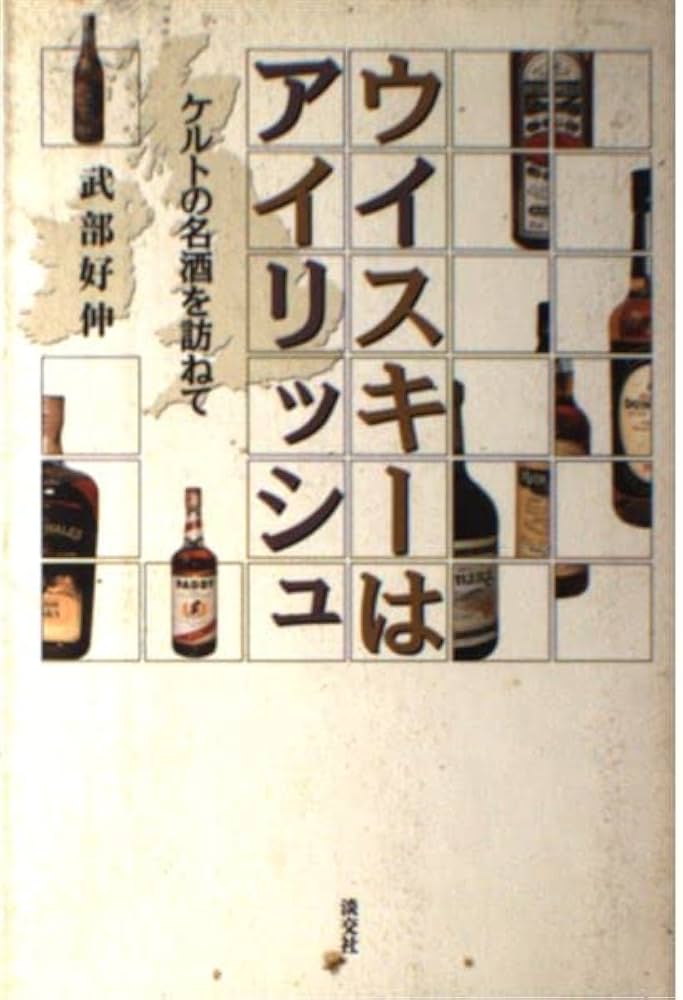 ウイスキーは
アイリッシュ
ケルトの名酒を訪ねて
武部好伸
PADDY
淡交社